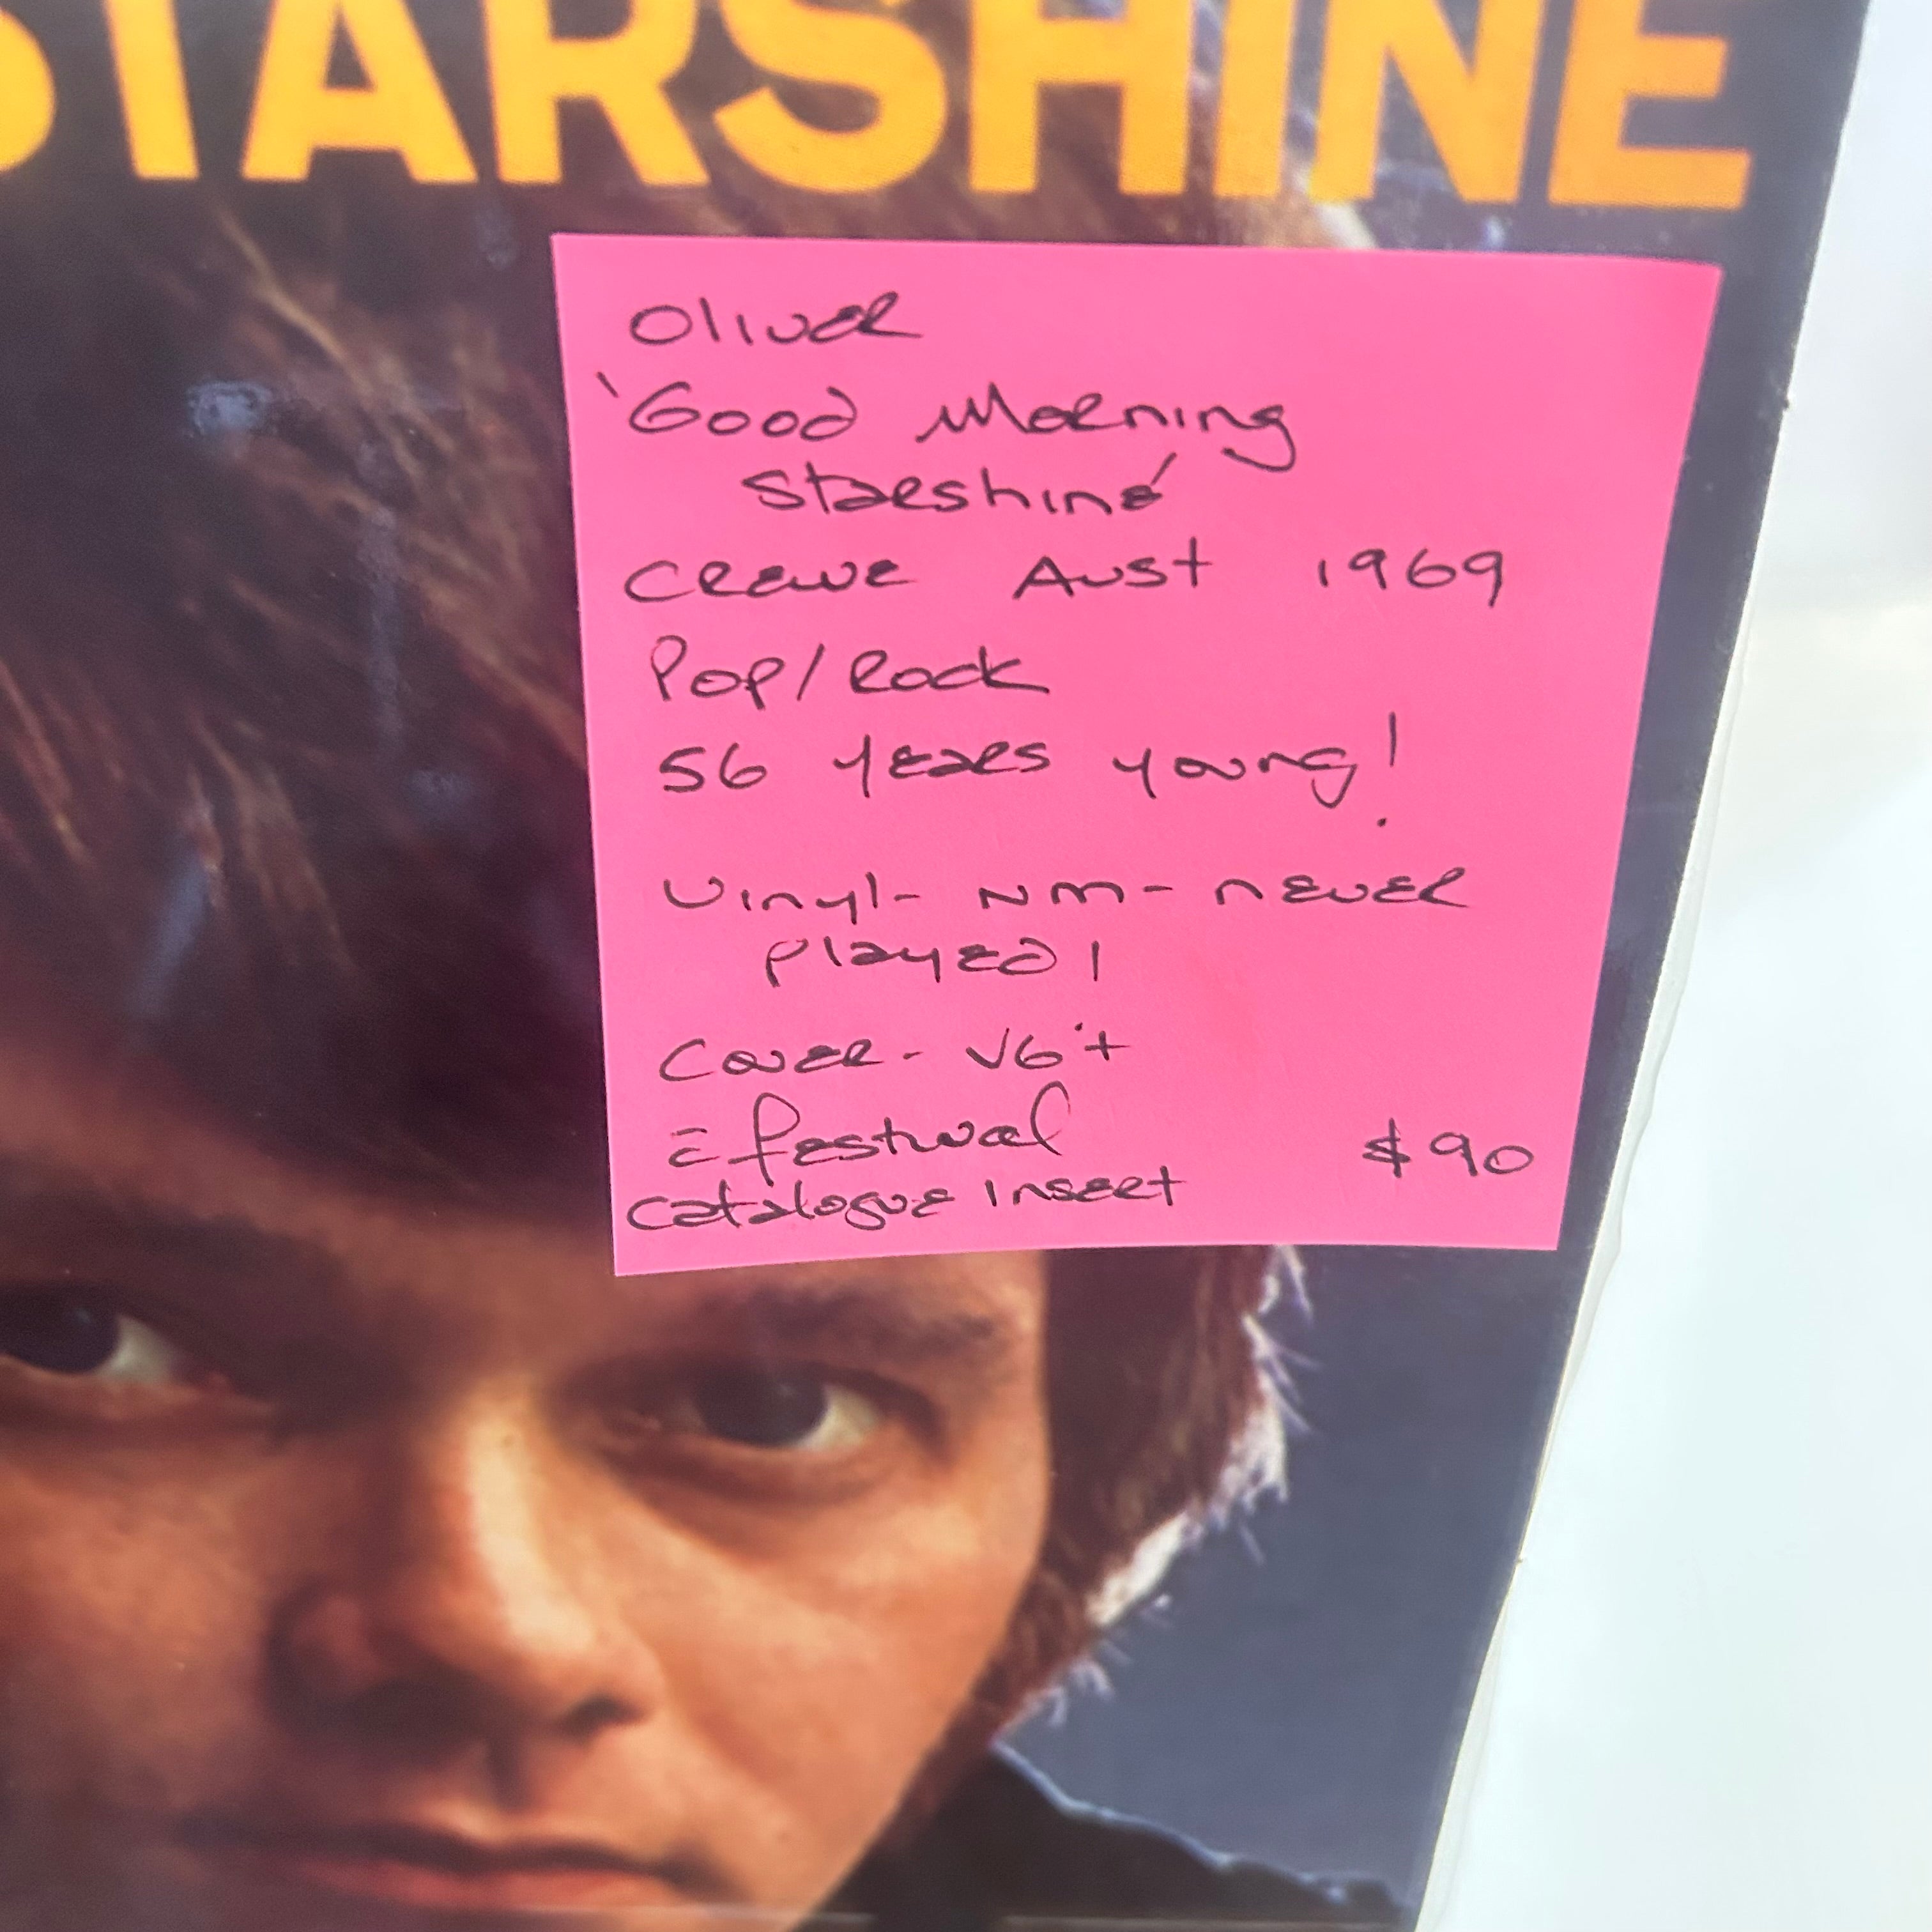 STARSHINE
Oliver
'Good Morning
Starshine'
Crewe Aust 1969
Pop/Rock
56 years young!
Vinyl- NM- never
played!
Cover- VG+
c̄ festival
catalogue insert $90